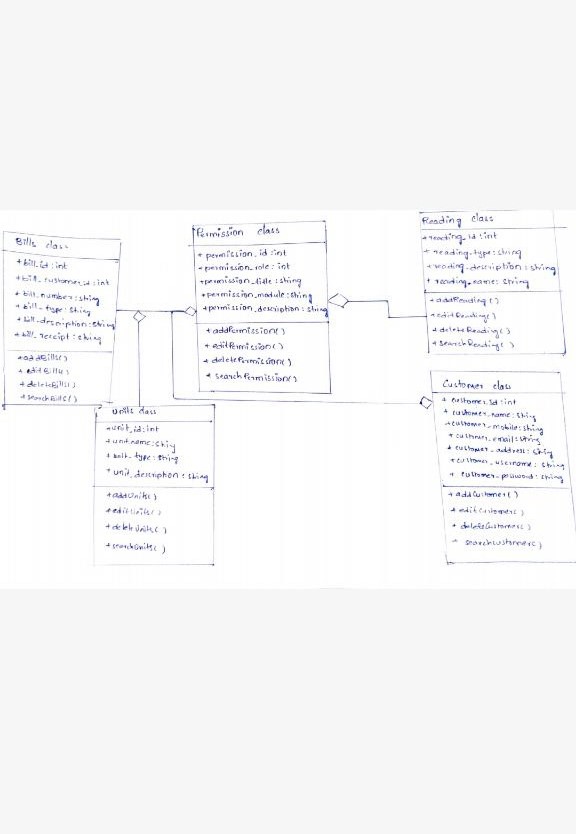 Bills class
+bill_id:int
+bill_customer_id:int
+bill_number:string
+bill_type:string
+bill_description:string
+bill_receipt:string
+addBills()
+editBills()
+deleteBills()
+searchBills()
Permission class
+permission_id:int
+permission_role:int
+permission_title:string
+permission_module:string
+permission_description:string
+addPermission()
+editPermission()
+deletePermission()
+searchPermission()
Reading class
+reading_id:int
+reading_type:string
+reading_description:string
+reading_name:string
+addReading()
+editReading()
+deleteReading()
+searchReading()
Units class
+unit_id:int
+unit_name:string
+unit_type:string
+unit_description:string
+addUnits()
+editUnits()
+deleteUnits()
+searchUnits()
Customer class
+customer_id:int
+customer_name:string
+customer_mobile:string
+customer_email:string
+customer_address:string
+customer_username:string
+customer_password:string
+addCustomer()
+editCustomer()
+deleteCustomer()
+searchCustomer()